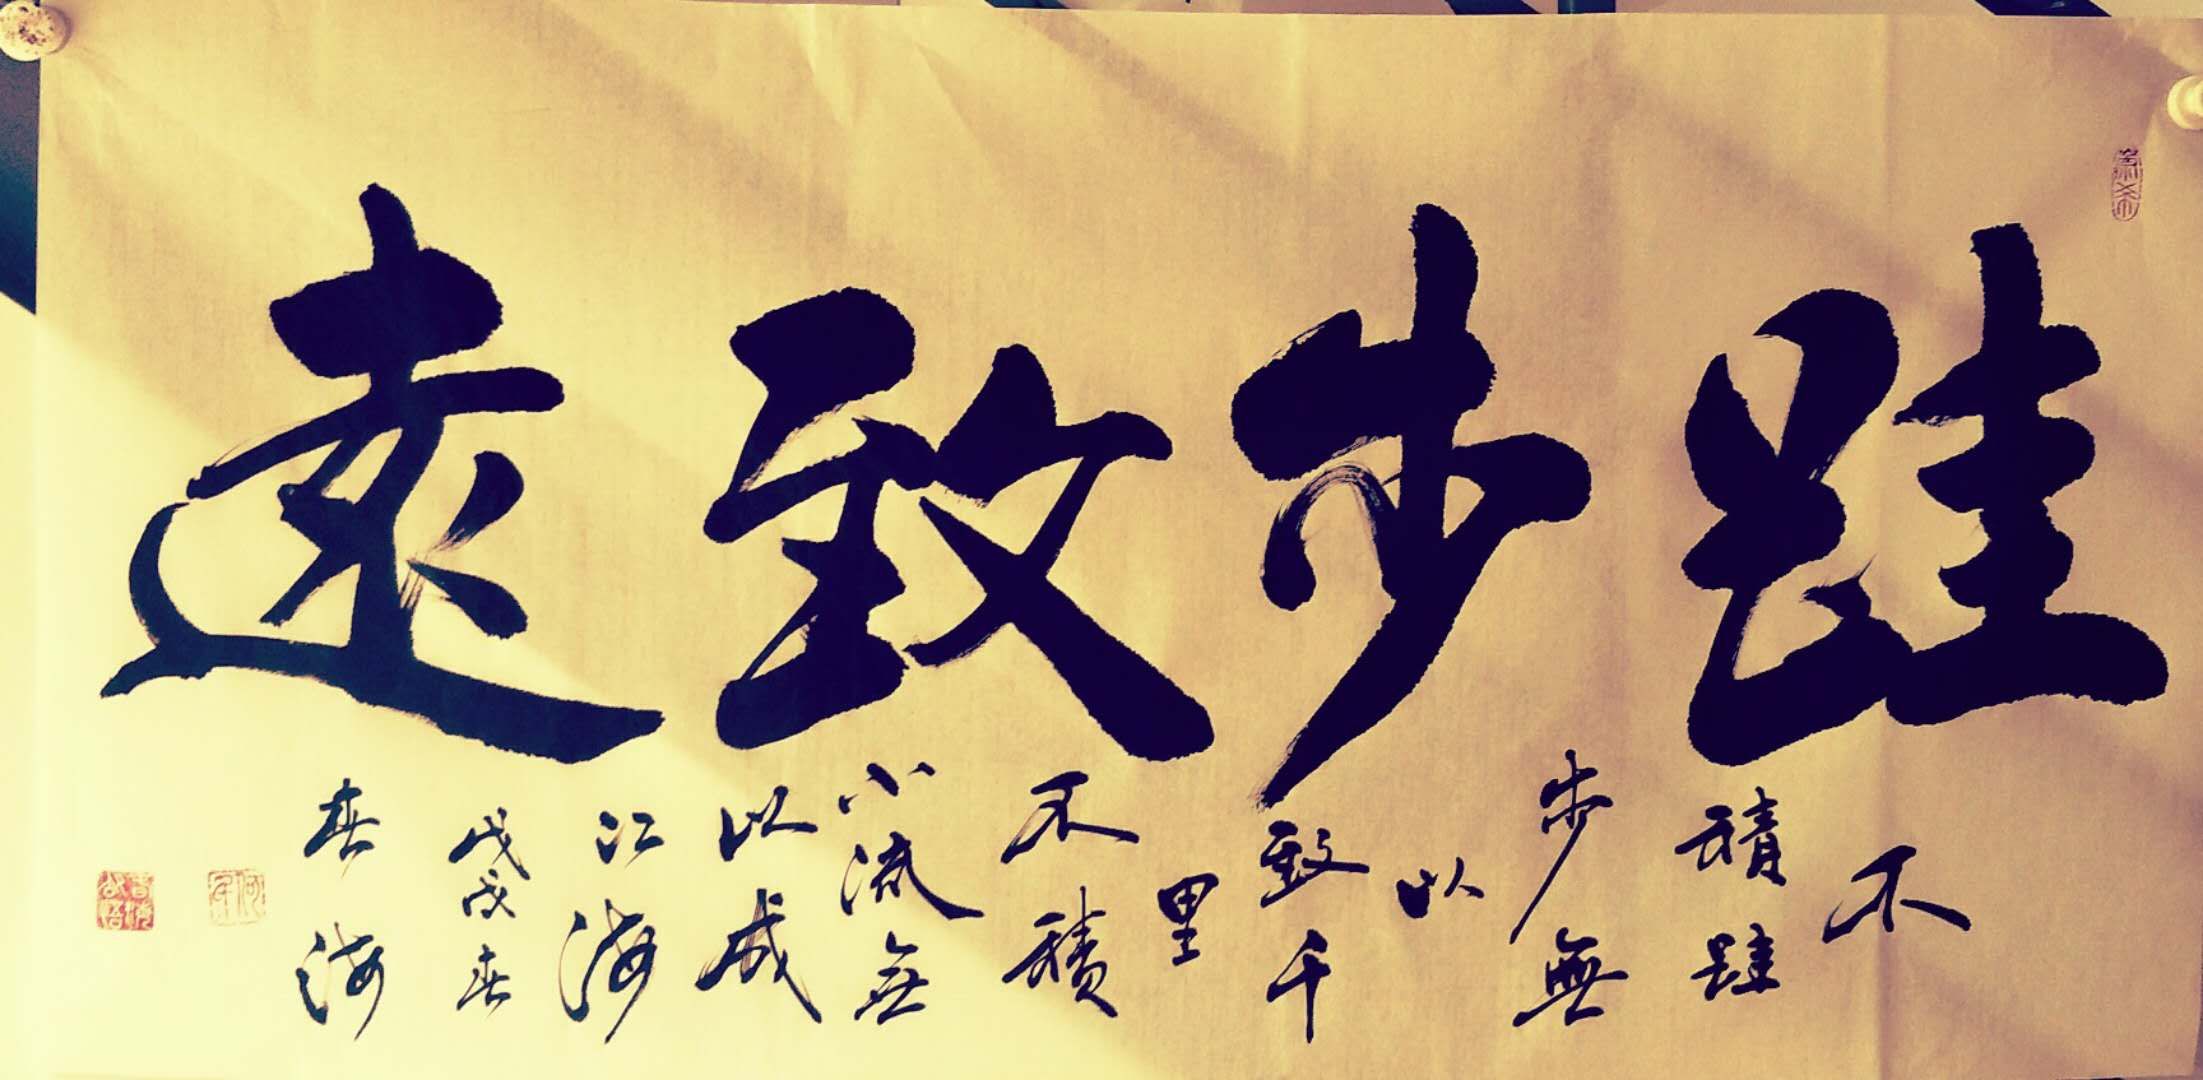 跬步致遠
不
積跬
步無
以
致千
里
不積
小流無
以成
江海
戊戌春
春海